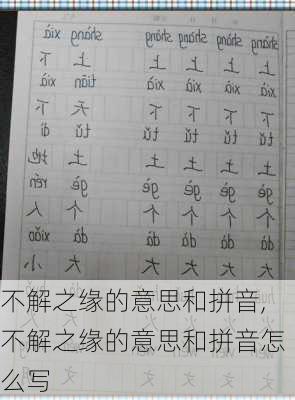 shàng shàng shàng shàng shàng xià
上 上 上 上 上 下
xià xià xià xià tiān xià
下 下 下 下 天 下
tǔ tǔ tǔ tǔ tǔ dì
土 土 土 土 土 地
gè gè gè gè gè rén
个 个 个 个 个 人
dà dà dà dà dà xiǎo
大 大 大 大 大 小
不解之缘的意思和拼音,
不解之缘的意思和拼音怎
么写